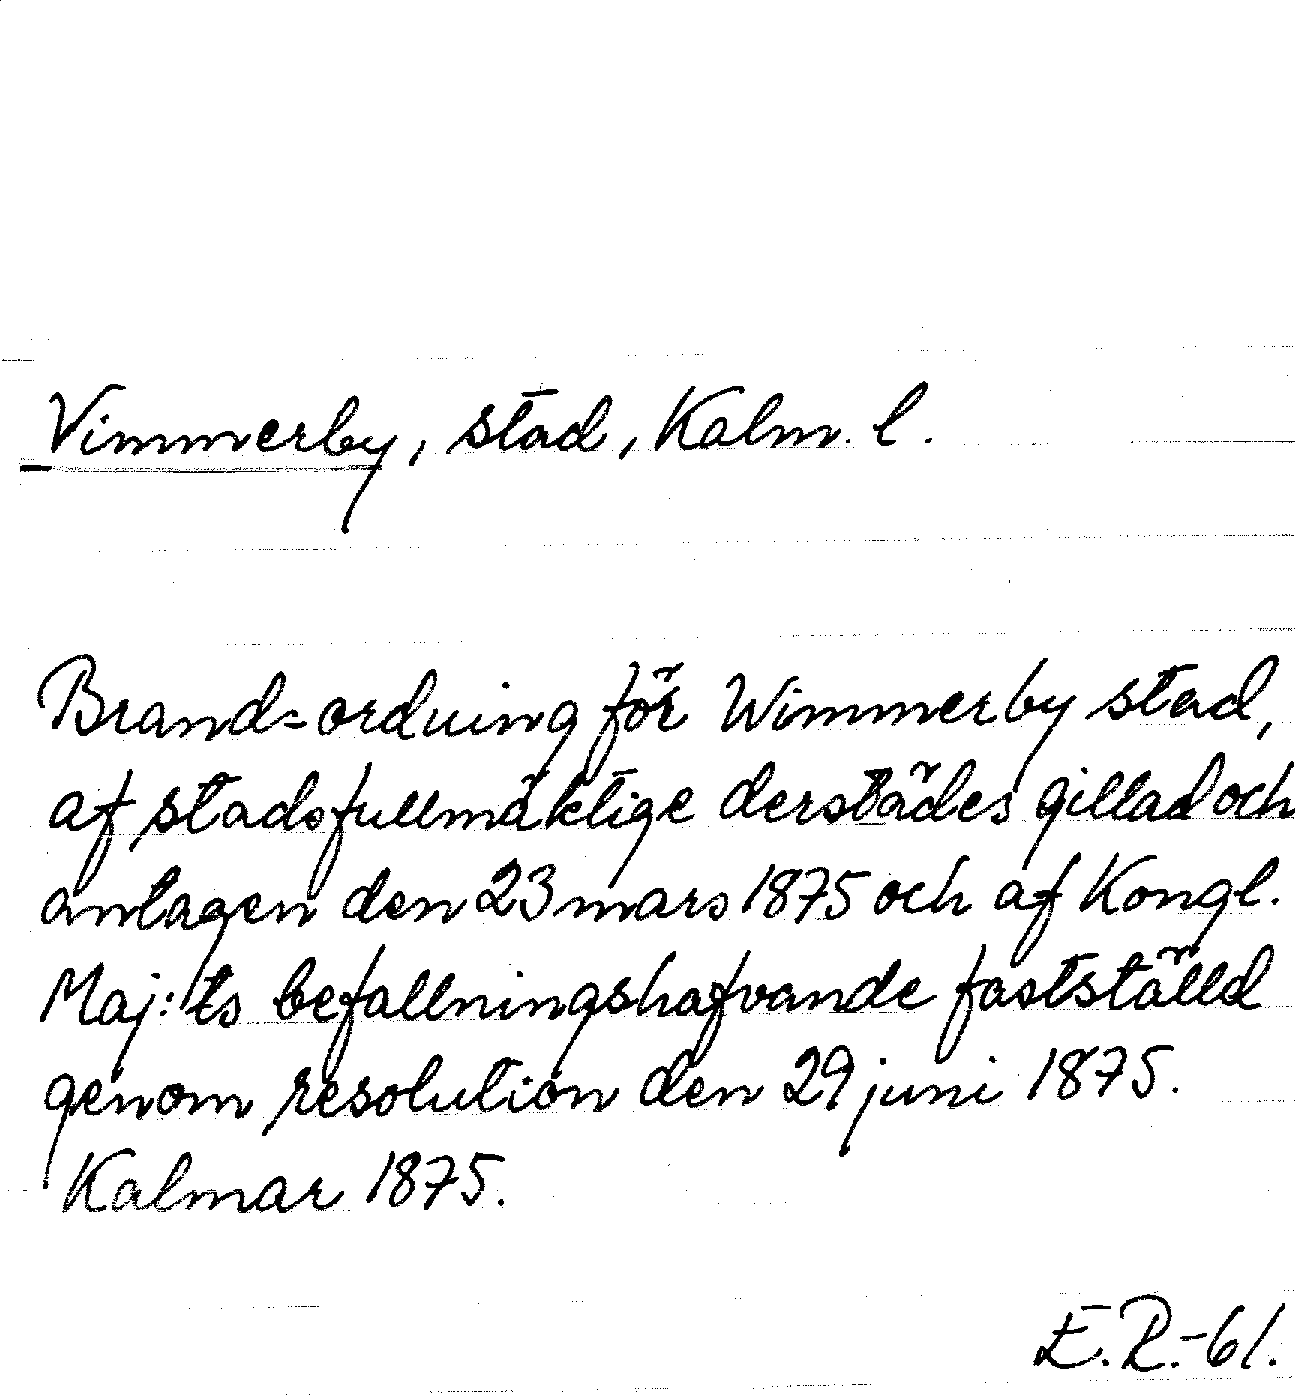 Vimmerby, stad, Kalm. l.
Brand=ordning för Wimmerby stad,
af stadsfullmäktige derstädes gillad och
antagen den 23 mars 1875 och af Kongl.
Maj:ts befallningshafvande fastställd
genom resolution den 29 juni 1875.
Kalmar 1875.
E.R.-61.